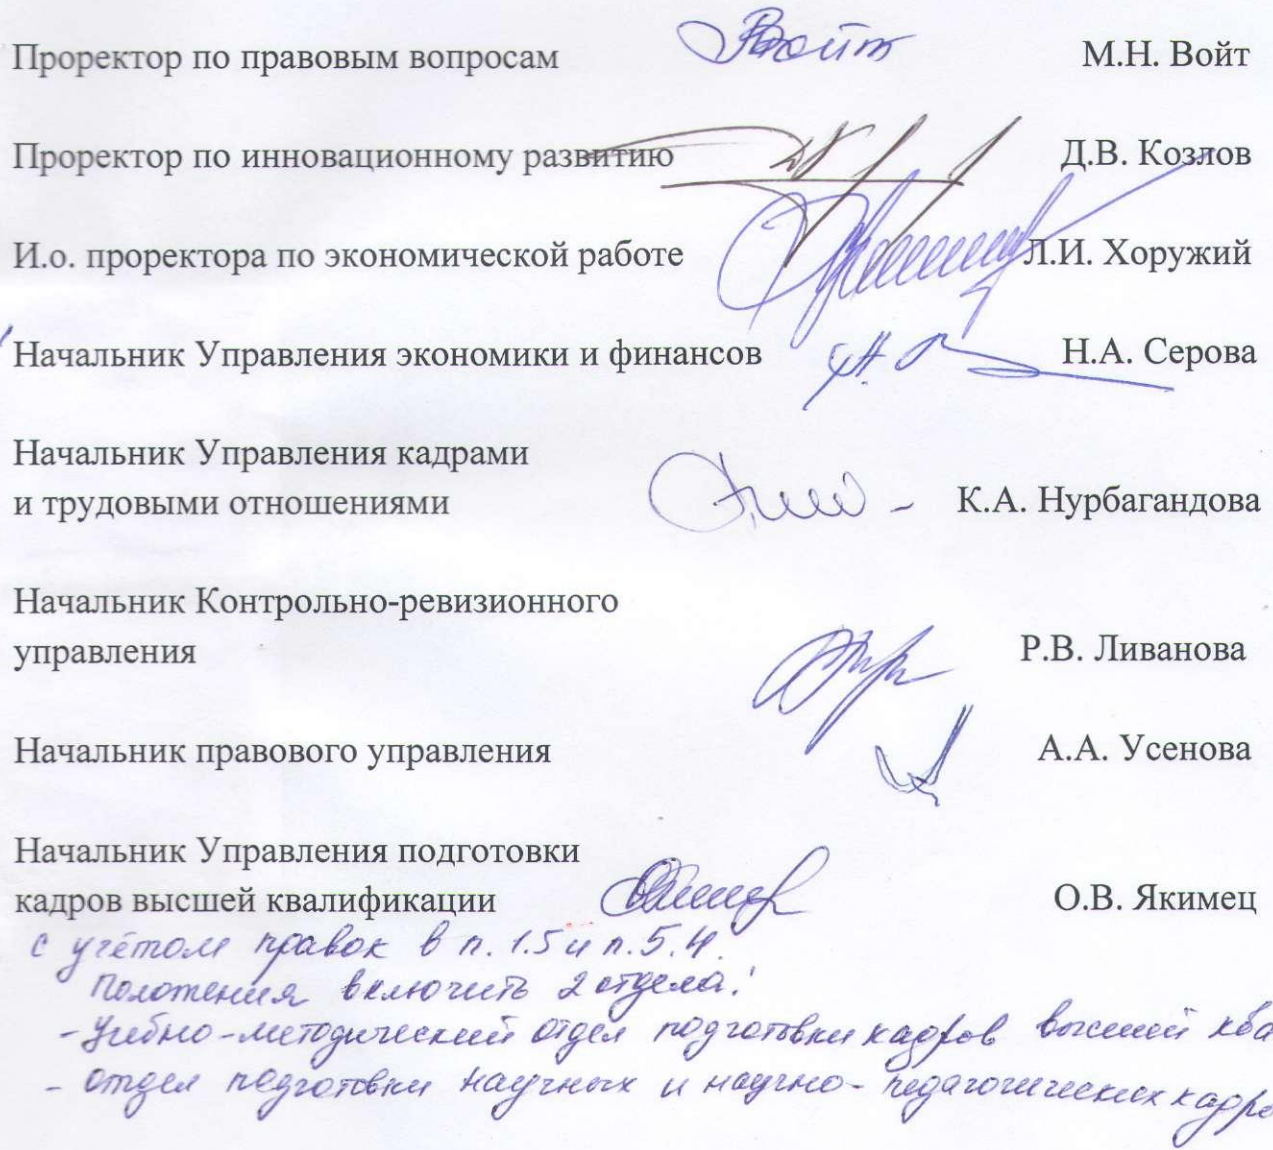 Проректор по правовым вопросам Войт М.Н. Войт
Проректор по инновационному развитию Д.В. Козлов
И.о. проректора по экономической работе Л.И. Хоружий
Начальник Управления экономики и финансов Н.А. Серова
Начальник Управления кадрами
и трудовыми отношениями К.А. Нурбагандова
Начальник Контрольно-ревизионного
управления Р.В. Ливанова
Начальник правового управления А.А. Усенова
Начальник Управления подготовки
кадров высшей квалификации О.В. Якимец
с учётом правок в п. 1.5 и п. 5.4.
Положения включить 2 отдела:
- Учебно-методический отдел подготовки кадров высшей ква
- отдел подготовки научных и научно-педагогических кадро